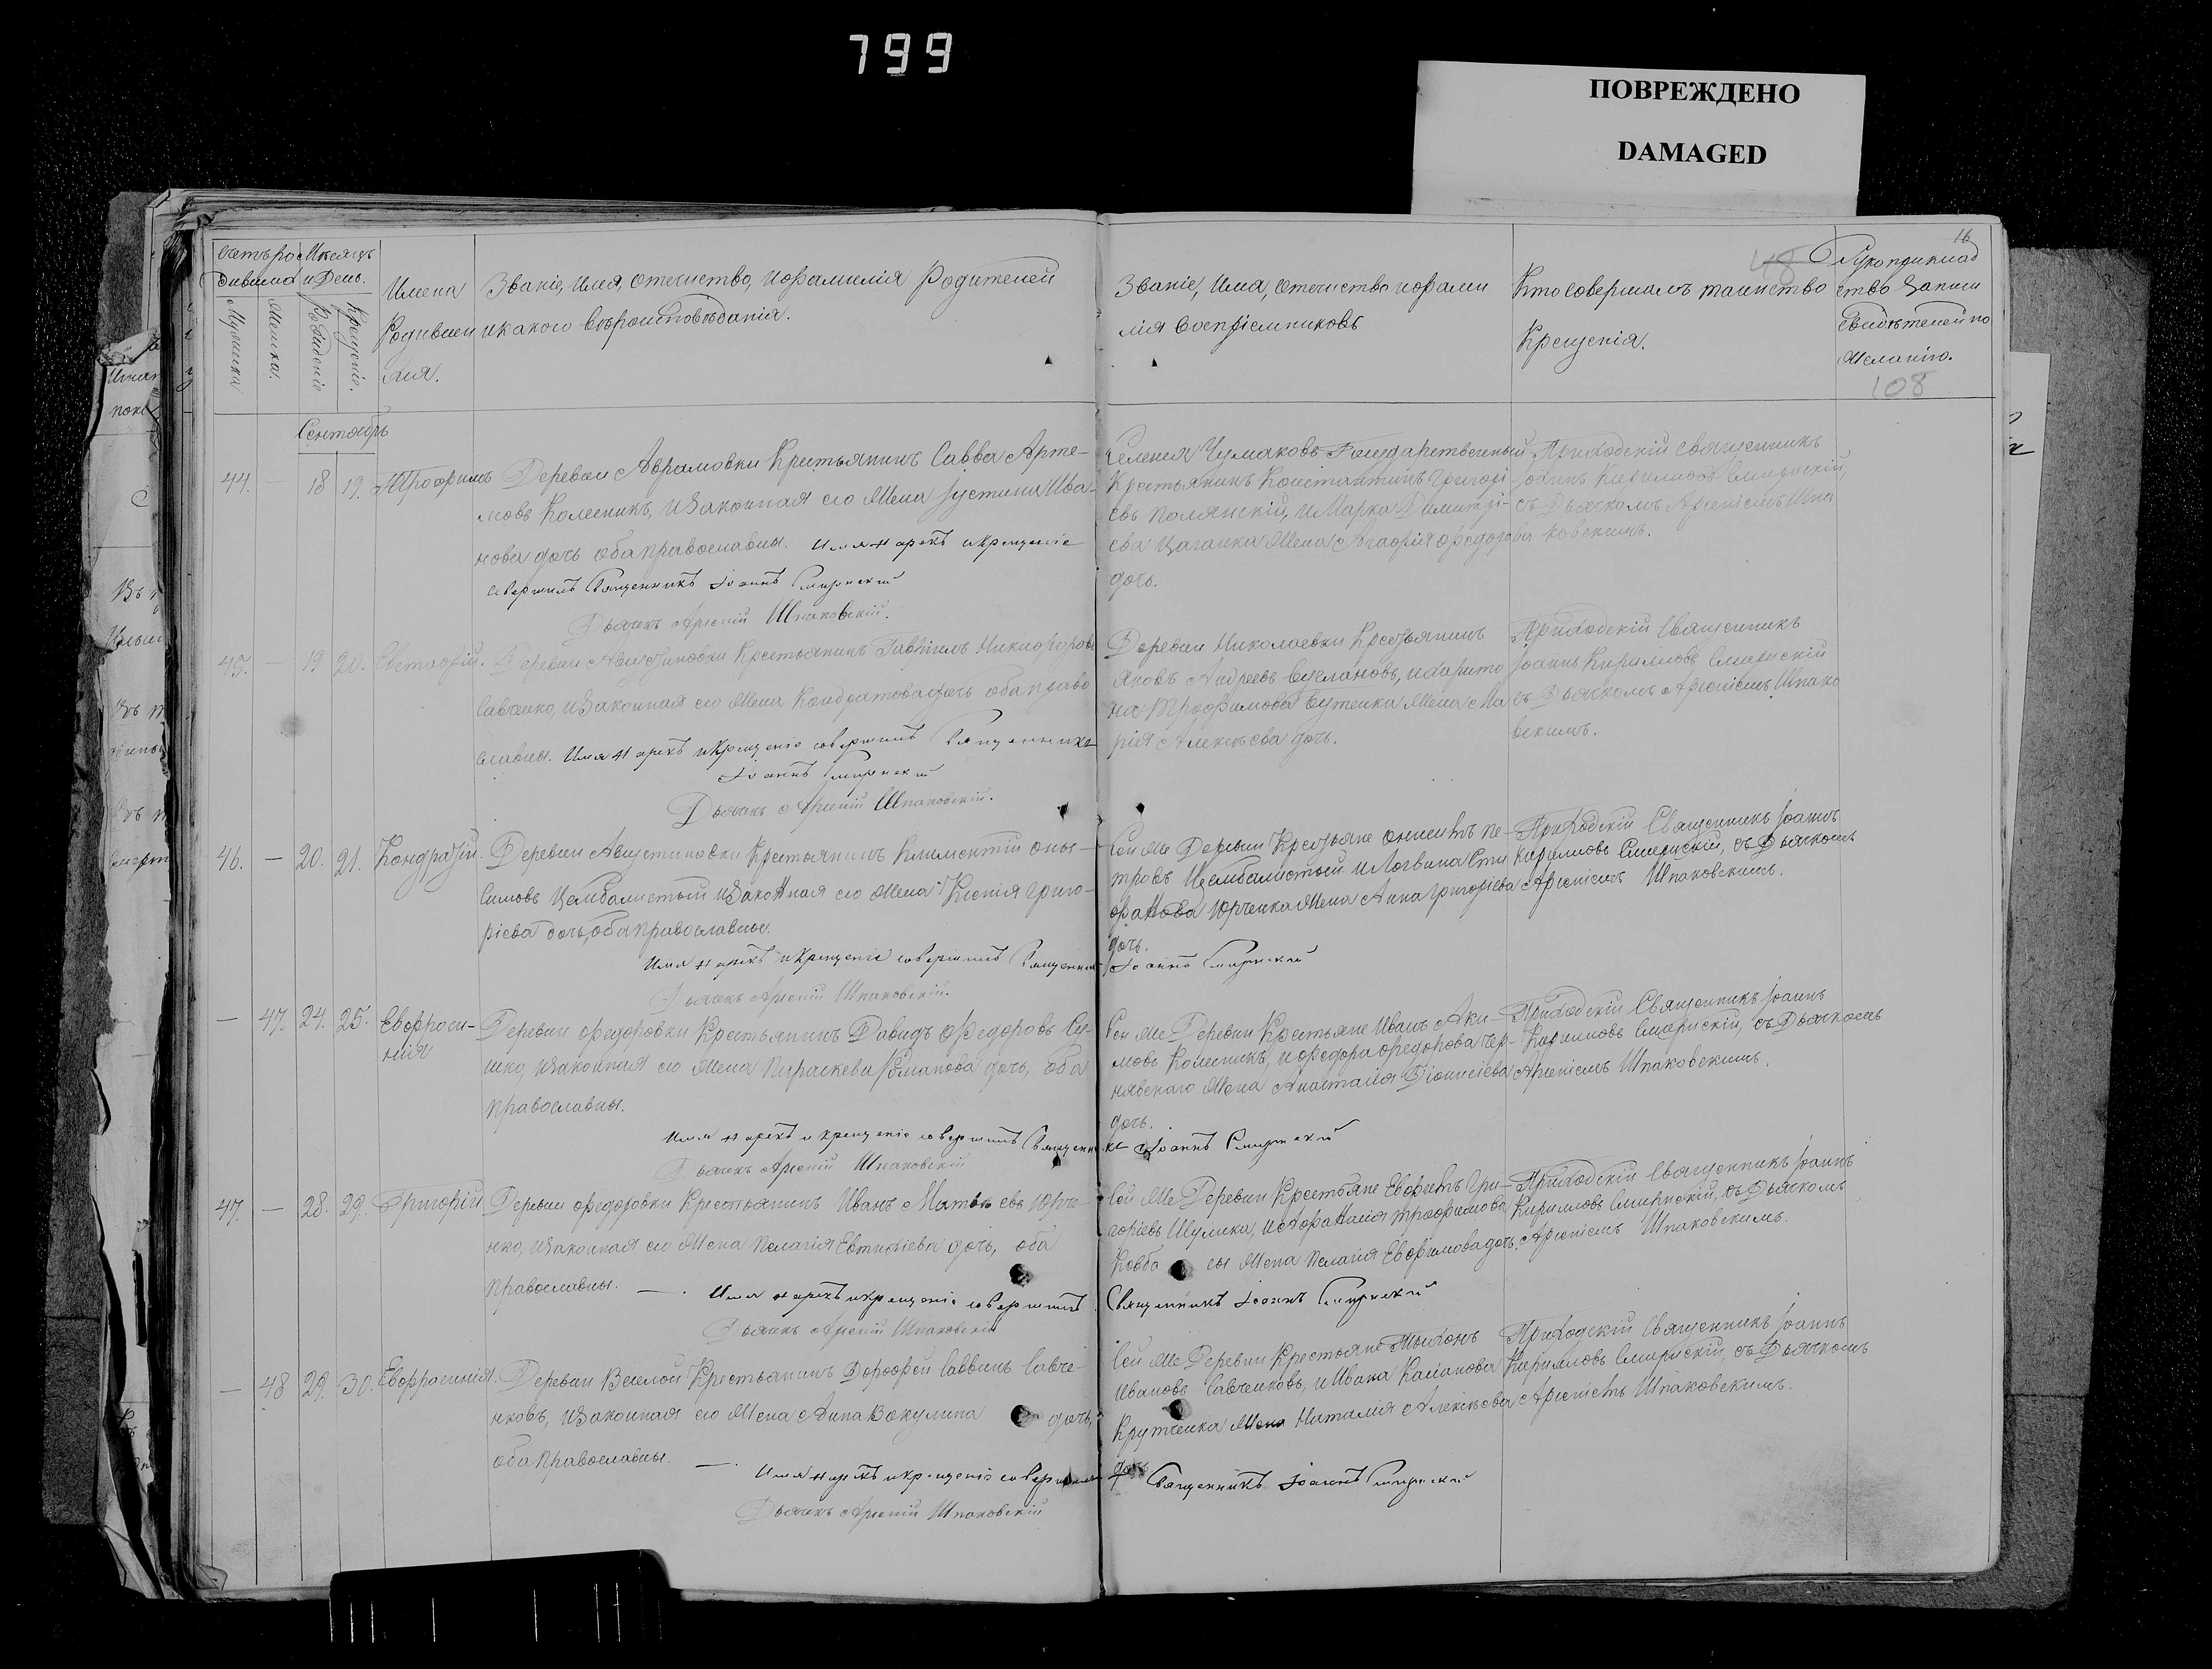 799
ПОВРЕЖДЕНО
DAMAGED
16
48
108
Счетъ родившихся
Мѣсяцъ и День.
Мужеска
Женска.
Рожденіе
Крещеніе.
Имена
Родивши
хся.
Званіе, Имя, отечество, и фамилія Родителей
и какого вѣроисповѣданія.
Званіе, Имя, отечество и фами
лія Воспріемниковъ
Кто совершалъ таинство
Крещенія.
Рукоприклад
ство записи
свидѣтелей по
желанію.
Сентябрь
44. — 18 19. Трофимъ
Деревни Аврамовки Крестьянинъ Савва Арте-
мовъ Колесникъ, и законная его жена Іустина Ива-
нова дочь оба православны. Имя нарекъ и крещеніе
совершилъ Священникъ Іоаннъ Смирнскій
Дьячекъ Арсеній Шпаковскій.
Селенія Чумаковъ Государственный
Крестьянинъ Константинъ Григорі
евъ Полянскій, и Марка Димитрі-
ева Цаганка жена Агафія Федорова
дочь.
Приходскій Священникъ
Іоаннъ Кириловъ Смирнскій,
съ Дьячкомъ Арсеніемъ Шпа
ковскимъ.
45. — 19. 20. Евстафій.
Деревни Августиновки Крестьянинъ Гавріилъ Никифоровъ
Савченко, и законная его жена Кондратова дочь оба право
славны. Имя нарекъ и крещеніе совершилъ Священникъ
Іоаннъ Смирнскій
Дьячекъ Арсеній Шпаковскій.
Деревни Николаевки Крестьянинъ
Яковъ Андреевъ Руслановъ, и Харито
на Трофимова Бутенка жена Ма
рія Алексѣева дочь.
Приходскій Священникъ
Іоаннъ Кириловъ Смирнскій
съ Дьячкомъ Арсеніемъ Шпако
вскимъ.
46. — 20. 21. Кондратій.
Деревни Августиновки Крестьянинъ Климентій Они-
симовъ Цымбалистый и законная его жена Ксенія Григо-
ріева дочь, оба православные.
Имя нарекъ и крещеніе совершилъ Священникъ Іоаннъ Смирнскій
Дьячекъ Арсеній Шпаковскій.
Сей же Деревни Крестьяне Онисимъ Пе-
тровъ Цымбалистый и Логвина Сти
фанова Юрченка жена Анна Григоріева
дочь.
Приходскій Священникъ Іоаннъ
Кириловъ Смирнскій, съ Дьячкомъ
Арсеніемъ Шпаковскимъ.
— 47. 24. 25. Евфроси-
нія
Деревни Федоровки Крестьянинъ Давидъ Федоровъ
и законная его жена Параскева Романова дочь, оба
православны.
Имя нарекъ и крещеніе совершилъ Священникъ Іоаннъ Смирнскій
Дьячекъ Арсеній Шпаковскій
Сей же Деревни Крестьяне Иванъ Аки-
мовъ Колесникъ, и Федора Федорова Чер-
нявскаго жена Анастасія Діонисіева
дочь.
Приходскій Священникъ Іоаннъ
Кириловъ Смирнскій, съ Дьячкомъ
Арсеніемъ Шпаковскимъ.
47. — 28. 29. Григорій
Деревни Федоровки Крестьянинъ Иванъ Матвѣевъ Юрче-
нко, и законная его жена Пелагія Евтихіева дочь, оба
православны. — . Имя нарекъ и крещеніе совершилъ
Священникъ Іоаннъ Смирнскій
Дьячекъ Арсеній Шпаковскій
Сей же Деревни Крестьяне Евфимъ Гри-
горіевъ Шулика, и Афанасія Трофимова
Ковба сы жена Пелагія Евфимова дочь.
Приходскій Священникъ Іоаннъ
Кириловъ Смирнскій, съ Дьячкомъ
Арсеніемъ Шпаковскимъ.
— 48 29. 30. Евфросинія.
Деревни Веселой Крестьянинъ Дорофей Саввинъ Савче-
нковъ, и законная его жена Анна Вакулина дочь,
оба православны. — . Имя нарекъ и крещеніе совершилъ
Священникъ Іоаннъ Смирнскій
Дьячекъ Арсеній Шпаковскій
Сей же Деревни Крестьяне Тихонъ
Ивановъ Савченковъ, и Ивана Касіанова
Крутченка жена Наталія Алексѣева
дочь
Приходскій Священникъ Іоаннъ
Кириловъ Смирнскій, съ Дьячкомъ
Арсеніемъ Шпаковскимъ.